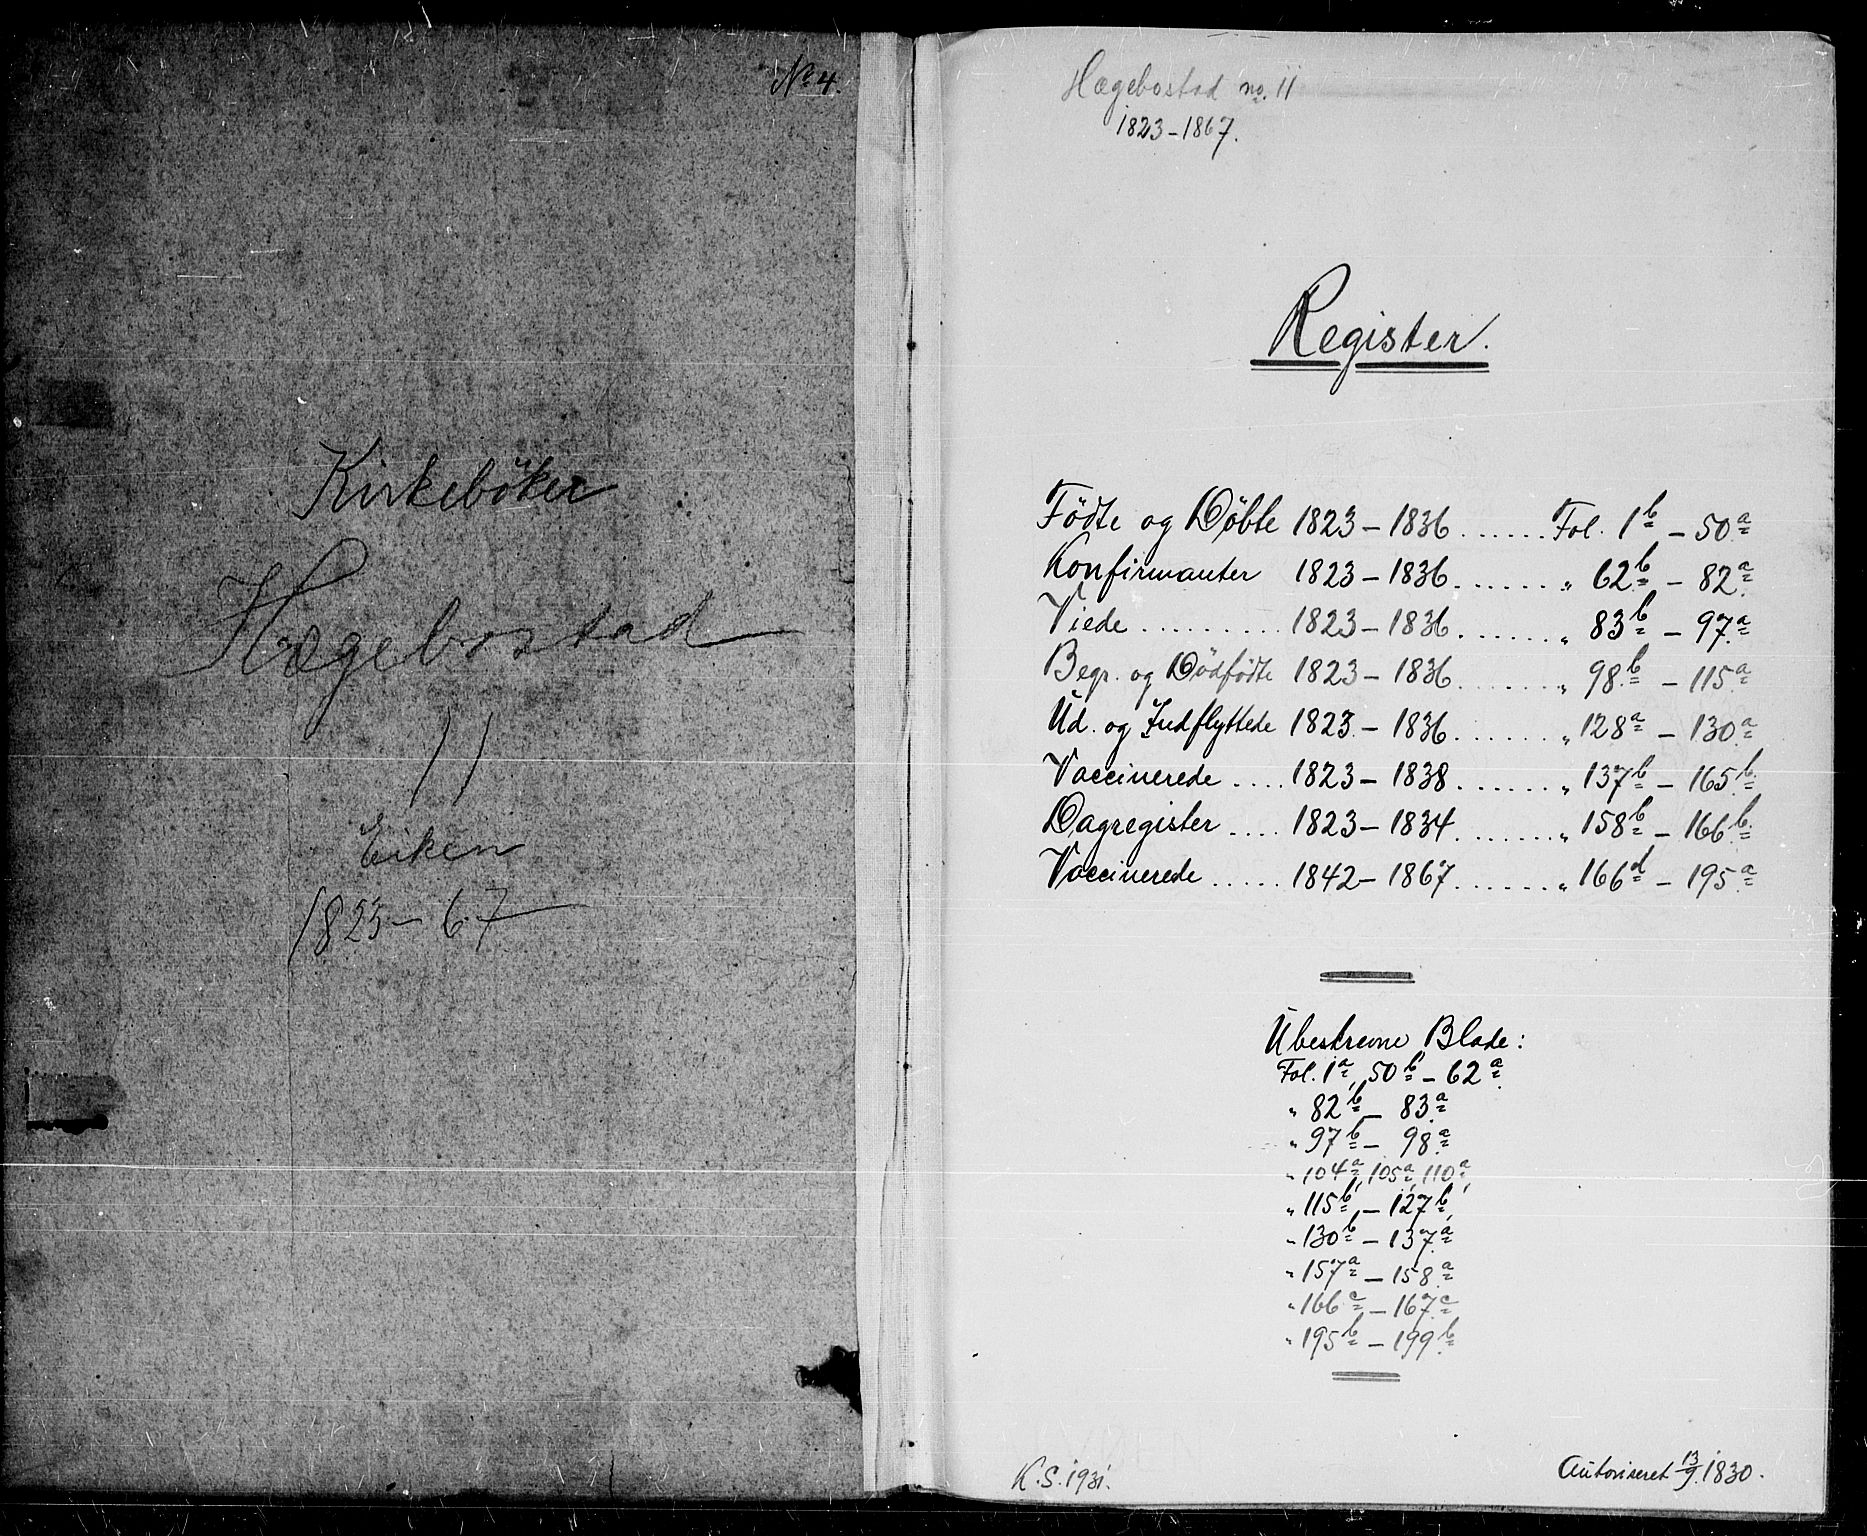 No. 4.
Kirkebøker
Hægebostad
11
Eiken
1823-67
Hægebostad no. 11
1823-1867.
Register.
Fødte og Døbte 1823-1836 ...... Fol. 1b - 50a
Konfirmanter 1823-1836 ....... " 62b - 82a
Viede .......... 1823-1836 ....... " 83b - 97a
Begr. og Dødfødte 1823-1836 ....... " 98b - 115a
Ud. og Indflyttede 1823-1836 ....... " 128a - 130a
Vaccinerede .... 1823-1838 ....... " 137b - 165b
Dagregister .... 1823-1834 ....... " 158b - 166b
Vaccinerede ..... 1842-1867 ....... " 166d - 195a
Ubeskrevne Blade:
Fol. 1a, 50b - 62a
" 82b - 83a
" 97b - 98a
" 104a, 105a, 110a,
" 115b, - 127b,
" 130b - 137a
" 157a - 158a
" 166c - 167c
" 195b - 199b
K.S. 1931.
Autoriseret 13/9. 1830.